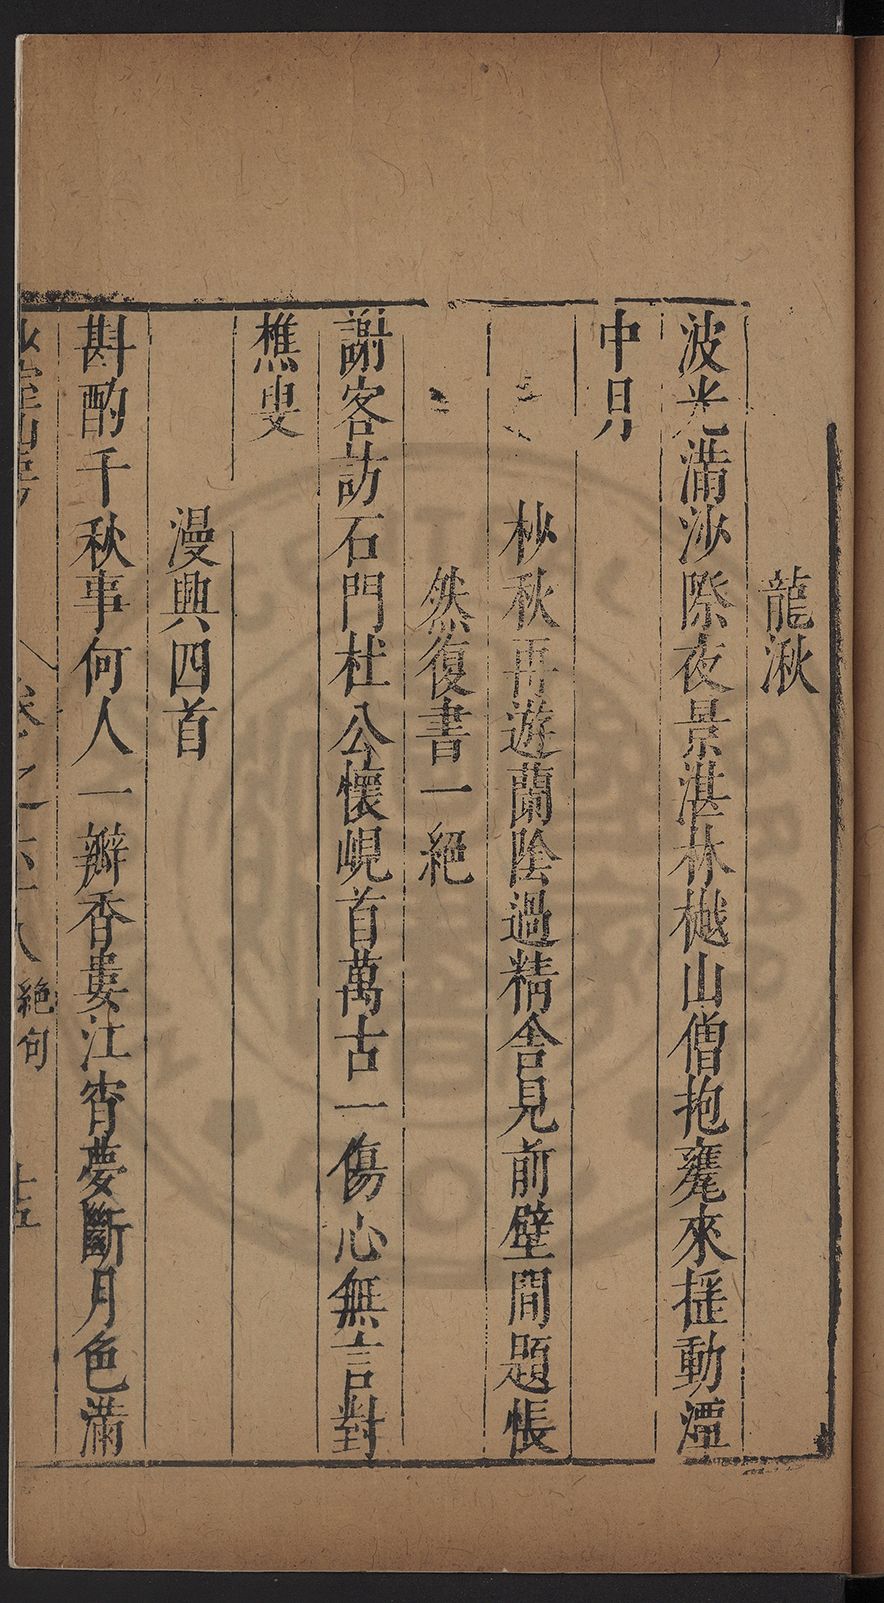 龍湫
波光滿沙際夜景湛林樾山僧抱甕來摇動潭
中月
杪秋再遊蘭陰過精舍見前壁間題帳
然復書一絕
謝客訪石門杜公懷峴首萬古一傷心無言對
樵叟
漫興四首
斟酌千秋事何人一瓣香婁江宵夢斷月色滿
絶句